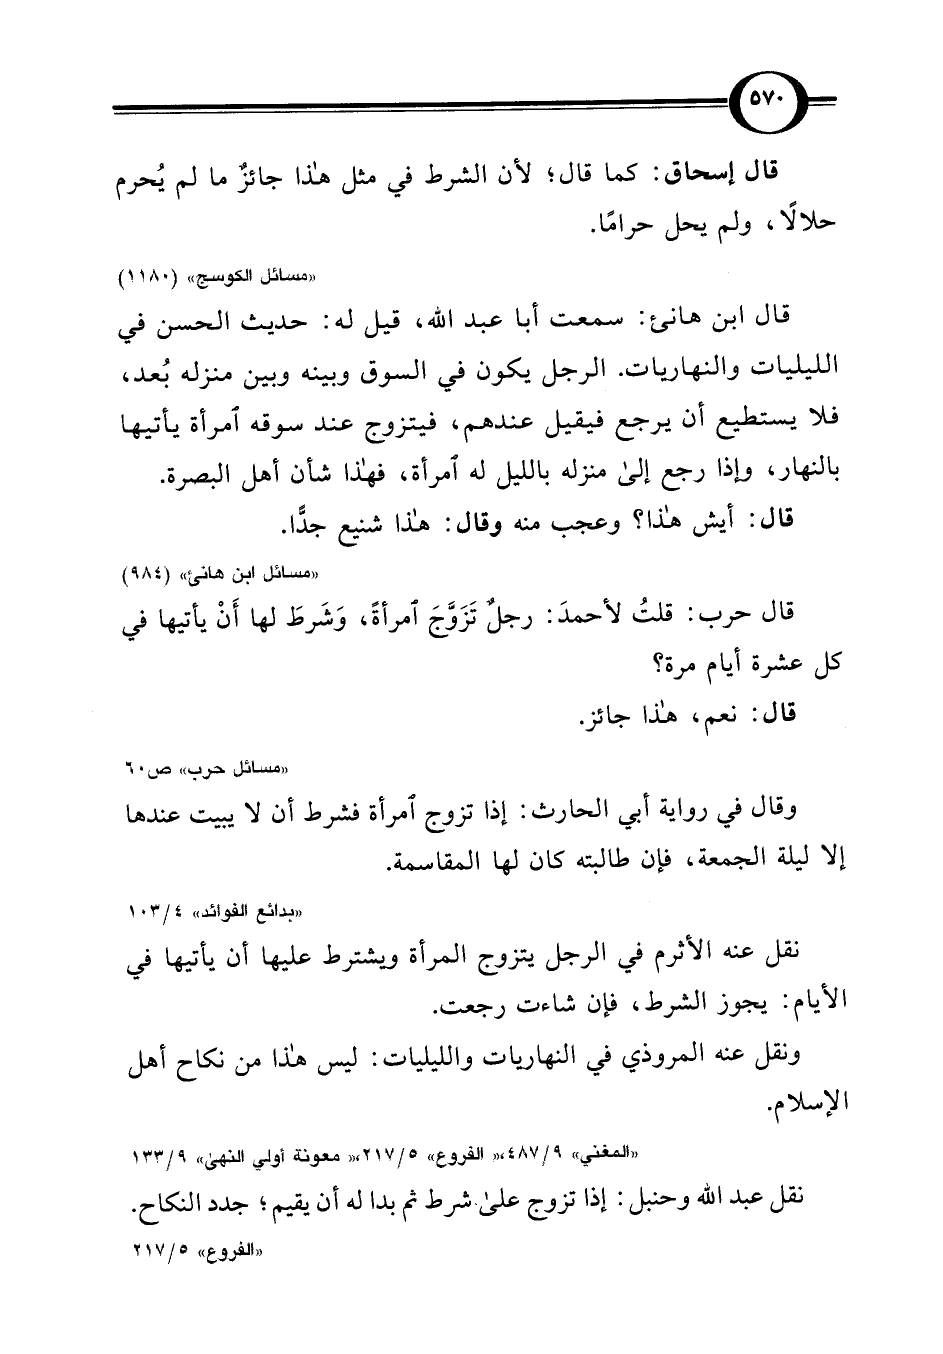 ٥٧٠
قال إسحاق: كما قال؛ لأن الشرط في مثل هٰذا جائزٌ ما لم يُحرم
حلالًا، ولم يحل حرامًا.
«مسائل الكوسج» (١١٨٠)
قال ابن هانئ: سمعت أبا عبد الله، قيل له: حديث الحسن في
الليليات والنهاريات. الرجل يكون في السوق وبينه وبين منزله بُعد،
فلا يستطيع أن يرجع فيقيل عندهم، فيتزوج عند سوقه ٱمرأة يأتيها
بالنهار، وإذا رجع إلىٰ منزله بالليل له ٱمرأة، فهٰذا شأن أهل البصرة.
قال: أيش هٰذا؟ وعجب منه وقال: هٰذا شنيع جدًّا.
«مسائل ابن هانئ» (٩٨٤)
قال حرب: قلتُ لأحمدَ: رجلٌ تَزَوَّجَ ٱمرأةً، وَشَرطَ لها أَنْ يأتيها في
كل عشرة أيام مرة؟
قال: نعم، هٰذا جائز.
«مسائل حرب» ص٦٠
وقال في رواية أبي الحارث: إذا تزوج ٱمرأة فشرط أن لا يبيت عندها
إلا ليلة الجمعة، فإن طالبته كان لها المقاسمة.
«بدائع الفوائد» ٤/١٠٣
نقل عنه الأثرم في الرجل يتزوج المرأة ويشترط عليها أن يأتيها في
الأيام: يجوز الشرط، فإن شاءت رجعت.
ونقل عنه المروذي في النهاريات والليليات: ليس هٰذا من نكاح أهل
الإسلام.
«المغني» ٩/٤٨٧،« الفروع» ٥/٢١٧،« معونة أولي النهىٰ» ٩/١٣٣
نقل عبد الله وحنبل: إذا تزوج علىٰ شرط ثم بدا له أن يقيم؛ جدد النكاح.
«الفروع» ٥/٢١٧